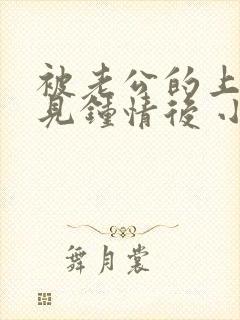 被老公的上
見鍾情後 小
舞月裳